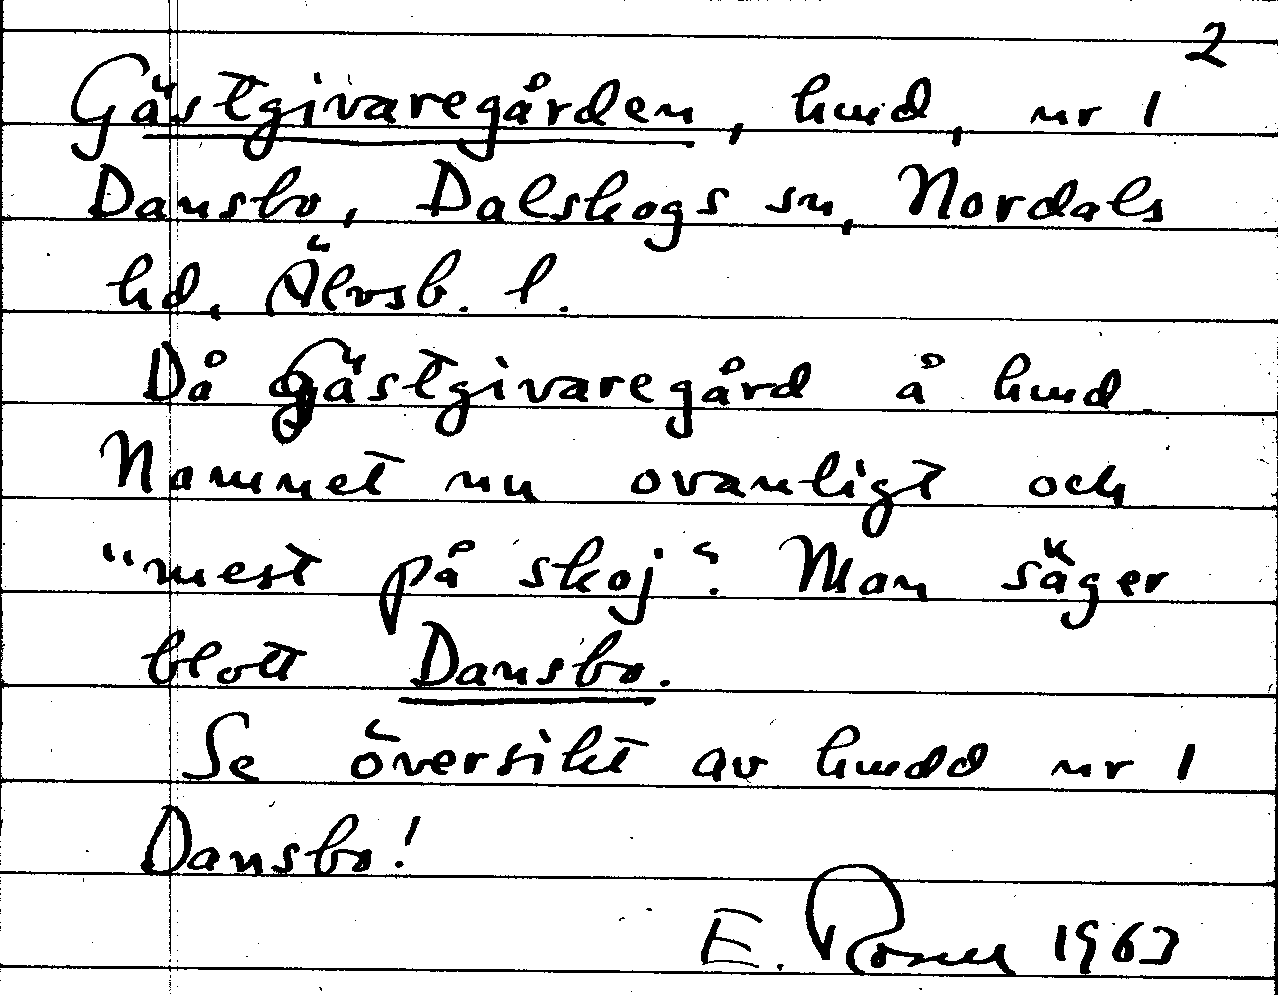 2
Gästgivaregården, hmd, nr 1
Dansbo, Dalskogs sn, Nordals
hd, Älvsb. l.
Då Gästgivaregård å hmd
Namnet nu ovanligt och
"mest på skoj". Man säger
blott Dansbo.
Se översikt av hmdd nr 1
Dansbo!
E. Rosell 1963